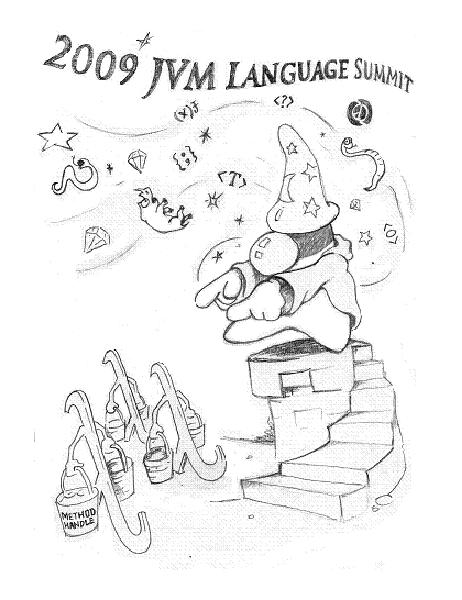 2009 JVM LANGUAGE SUMMIT
<?>
(x){
{;}
<T>
METHOD
HANDLE